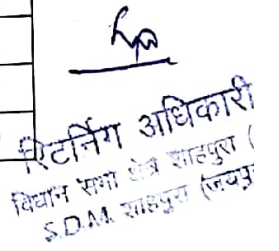 रिटर्निंग अधिकारी
विधान सभा क्षेत्र शाहपुरा (
S.D.M. शाहपुरा (जयपु